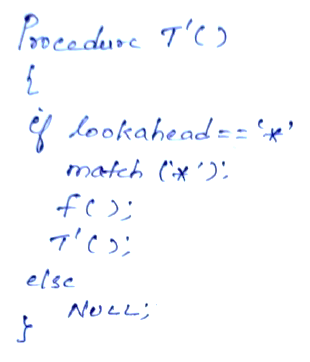 Procedure T'()
{
if lookahead == '*'
match ('*');
f();
T'();
else
NULL;
}